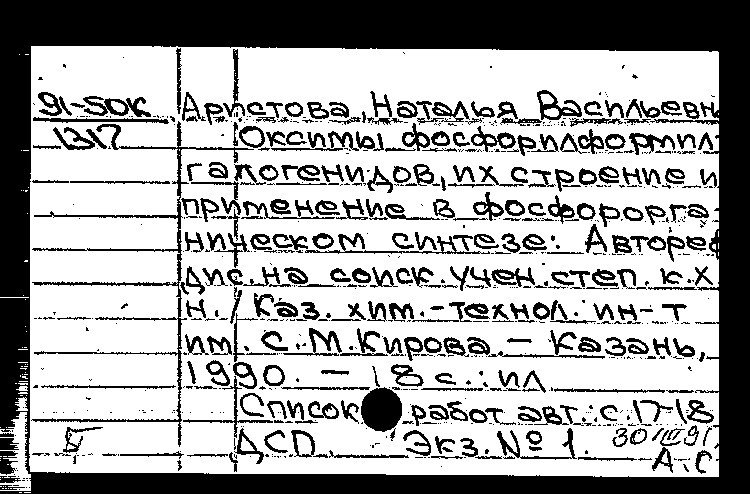 91-50К Аристова, Наталья Васильевн
1317 Оксимы фосфорилформил-
галогенидов, их строение и
применение в фосфорорга-
ническом синтезе: Автореф
дис. на соиск. учен. степ. к.х.
н. / Каз. хим.-технол. ин-т
им. С.М. Кирова. – Казань,
1990. – 18 с.: ил
Список работ авт.: с. 17-18
ДСП. Экз. № 1. 30/III 91.
А.С